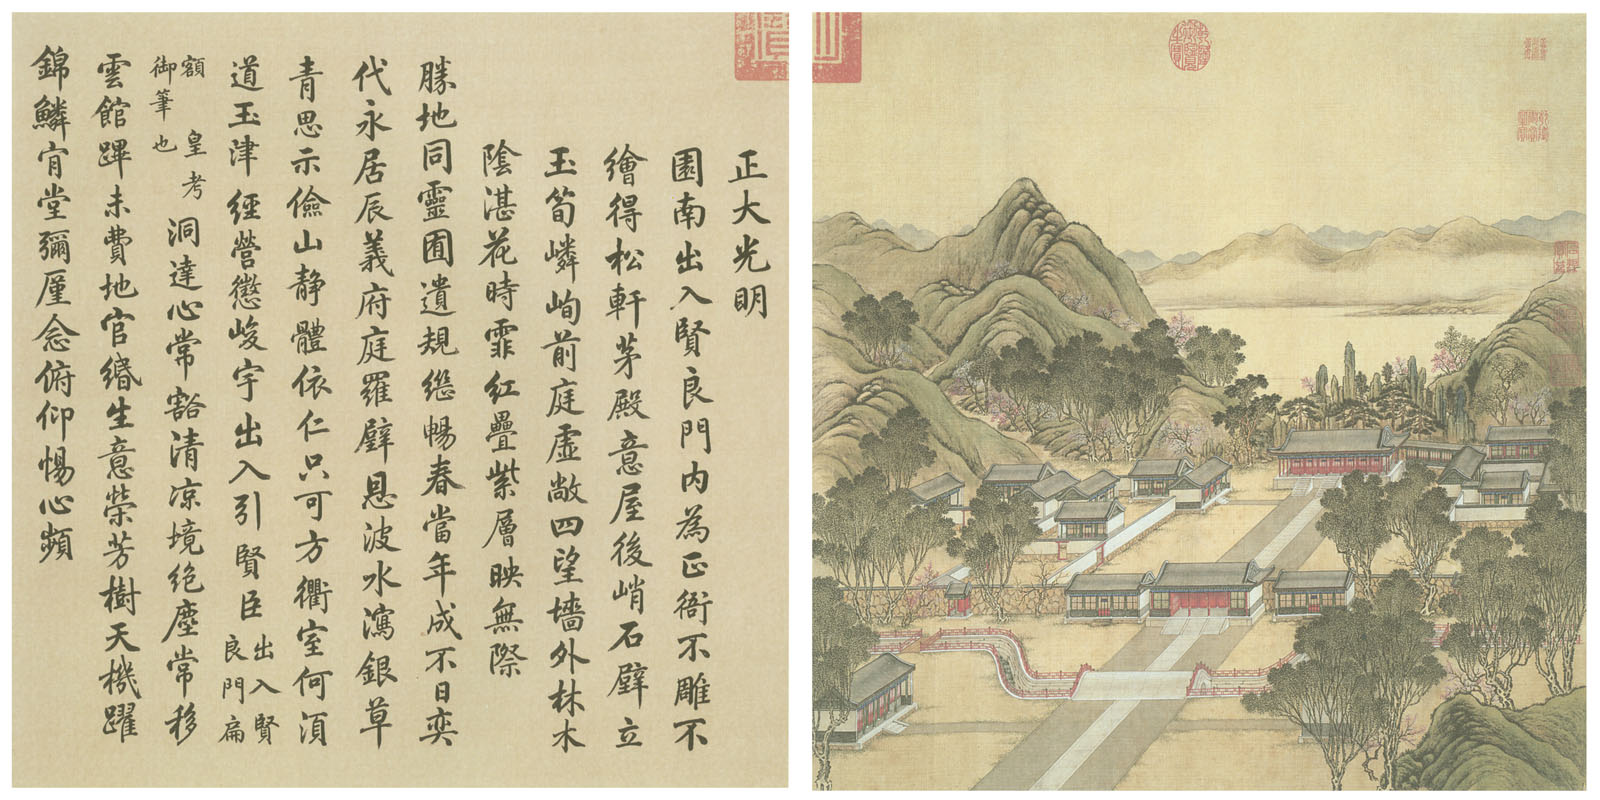 正大光明
園南出入賢良門內為正衙不雕不
繪得松軒茅殿意屋後峭石壁立
玉筍嶙峋前庭虛敞四望墻外林木
陰湛花時霏紅疊紫層映無際
勝地同靈囿遺規継暢春當年成不日奕
代永居辰義府庭羅壁恩波水瀉銀草
青思示儉山静體依仁只可方衢室何須
道玉津經營懲峻宇出入引賢臣出入賢
良門扁
額皇考
御筆也洞達心常豁清凉境絶塵常移
雲館蹕未費地官緡生意榮芳樹天機躍
錦鱗宵堂彌厪念俯仰惕心頻